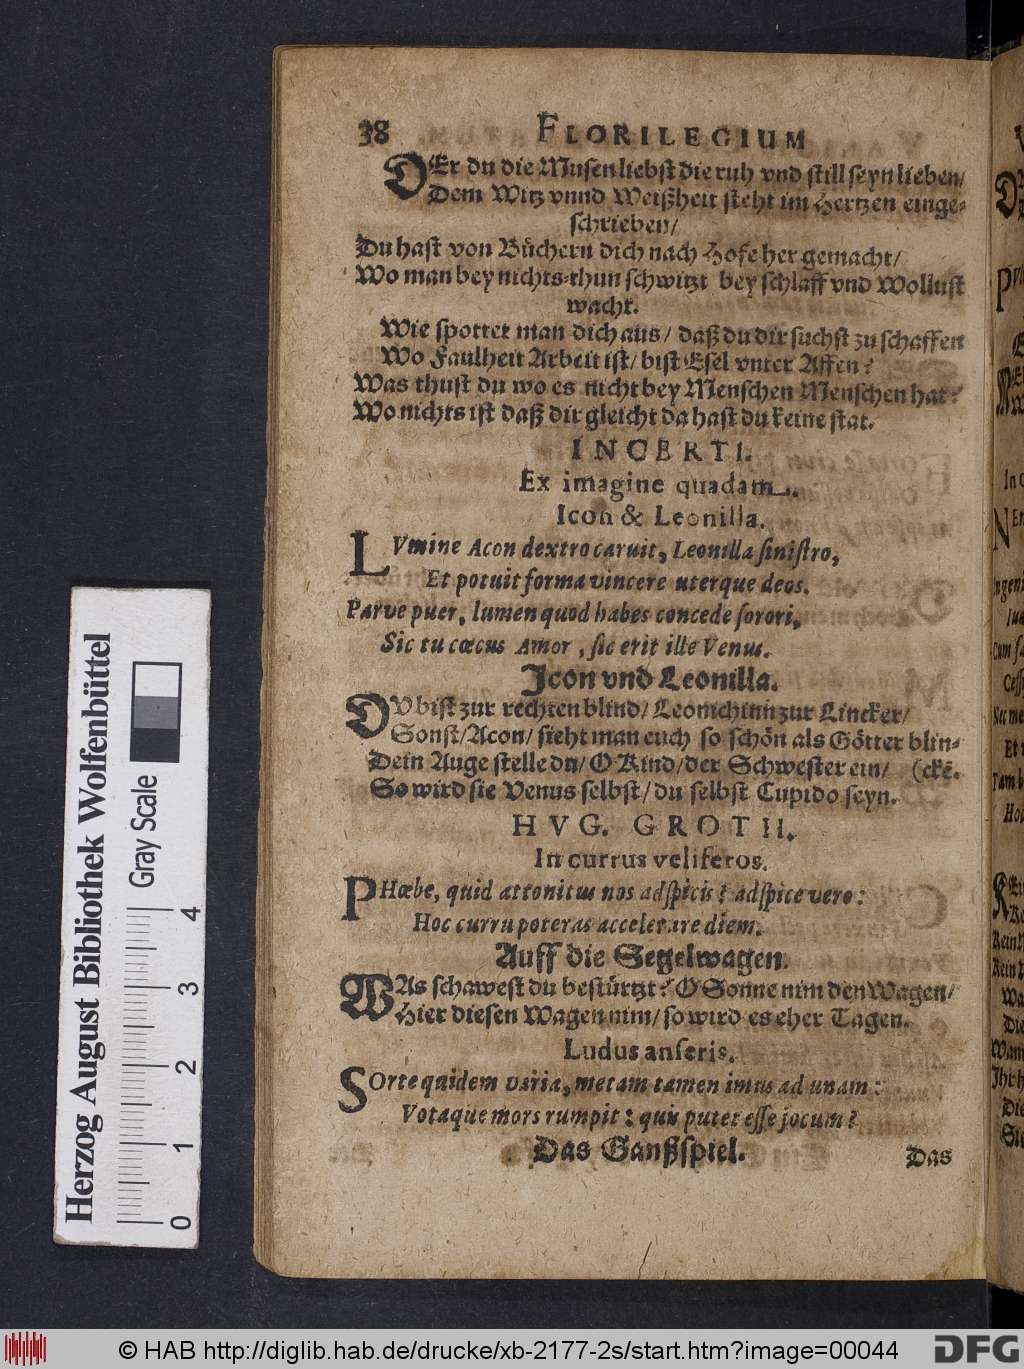 38 FLORILEGIUM
DEr du die Musen liebst die ruh vnd still seyn lieben/
Dem Witz vnnd Weißheit steht im Hertzen einge-
schrieben/
Du hast von Büchern dich nach Hofe her gemacht/
Wo man bey nichts-thun schwitzt bey schlaff vnd Wollust
wacht.
Wie spottet man dich aus/ daß du dir suchst zu schaffen
Wo Faulheit Arbeit ist/ bist Esel vnter Affen?
Was thust du wo es nicht bey Menschen Menschen hat?
Wo nichts ist daß dir gleicht da hast du keine stat.
INCERTI.
Ex imagine quadam.
Icon & Leonilla.
LVmine Acon dextro caruit, Leonilla sinistro,
Et potuit forma vincere uterque deos.
Parve puer, lumen quod habes concede sorori,
Sic tu cœcus Amor, sic erit illa Venus.
Icon vnd Leonilla.
DV bist zur rechten blind/ Leonichinn zur Lincker/
Sonst/ Acon/ sieht man euch so schön als Götter blin-
Dein Auge stelle du/ O Kind/ der Schwester ein/ (ckē.
So wird sie Venus selbst/ du selbst Cupido seyn.
HVG. GROTII.
In currus veliferos.
PHœbe, quid attonitus nos adspicis? adspice vero:
Hoc curru poteras accelerare diem.
Auff die Segelwagen.
WAs schawest du bestürtzt? O Sonne nim den Wagen/
Hier diesen Wagen nim/ so wird es eher Tagen.
Ludus anseris.
SOrte quidem varia, metam tamen imus ad unam:
Votaque mors rumpit: quis putet esse jocum?
Das Ganßspiel.
Das
Herzog August Bibliothek Wolfenbüttel
Gray Scale
0 1 2 3 4
© HAB http://diglib.hab.de/drucke/xb-2177-2s/start.htm?image=00044
DFG